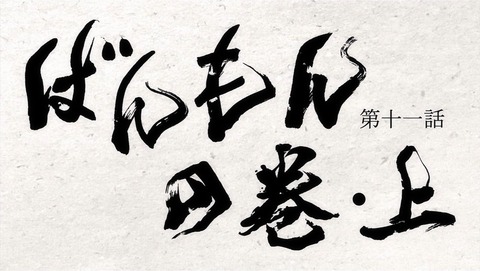 ばんもん
第十一話
の巻・上